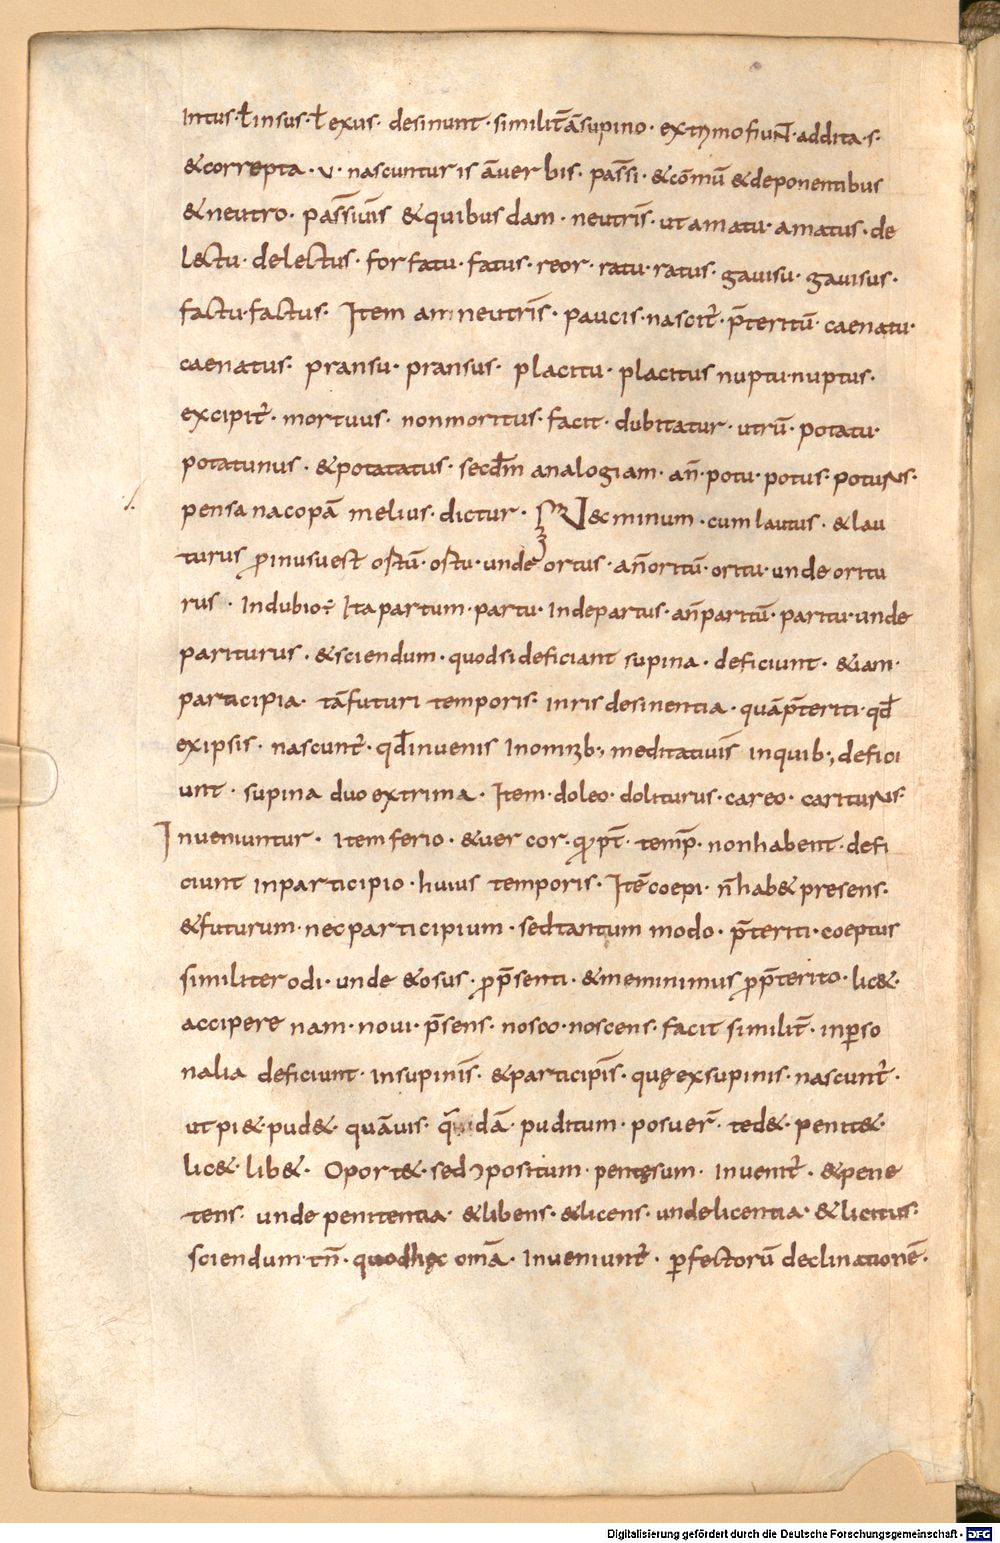 Intus· ł insus· ł exus· desinunt· similit̄ āsupino· extꝫmo fiuNt̄· addita· s·
&correpta· v· nascuntur is āuerbis· pass̄i· &cōmū &deponentibus
&neutro· pass̄iuis̄ &quibusdam· neutris̄· ut amatu· amatus· de
lectu· delectus· for fatu· fatus· reor· ratu· ratus· gauisu· gauisus·
factu· factus· Item am neutris̄· paucis· nascit̄· p̄teritū· caenatu·
caenatus· pransu· pransus· placitu· placitus nuptu· nuptus·
excipit̄· mortuus· nonmoritus· facit· dubitatur· utrū· potatu·
potatunus· &potatatus· secd̄m analogiam· an̄· potu· potus· potuNs·
pensanacopā melius· dictur· &minum· cum lautus· &lau
turus ꝓinusuest ostū· ostu· unde ortus· an̄oritū· oritu· unde oritu
rus· Indubio÷ Ita partum· partu· Inde partus· an̄paritū· paritu· unde
pariturus· &sciendum· quodsideficiant supina· deficiunt· &iam·
participia· tāfuturi temporis· inris desinentia· quāp̄teriti· qd̄
exipsis· nascunt̄· qd̄inuenis Inomīb; meditatiuis̄ inquib; defici
unt· supina duo extrima· Item· doleo· doliturus· careo· carituNs·
Inueniuntur· Item ferio· &uercor· q̇ p̄t̄· temp̄· nonhabent· defi
ciunt inparticipio· huius temporis· Itē coepi· n̄hab& presens·
&futurum· necparticipium· sedtantum modo· p̄teriti· coeptus
similiter odi· unde &osus· ꝓp̄senti· &meminimus ꝓp̄terito· lic&·
accipere nam· noui· p̄sens· nosco· noscens· facit similit̄· inꝑso
nalia deficiunt· insupinis̄· &participis̄· quę exsupinis· nascunt̄·
ut pi&· pud&· quāuis· q̄idā· puditum· posuer̄· ted&· penit&·
lic&· lib&· Oport&· sed ꝯpositum· pentęsum· Inuenit̄· &pene
tens· unde penitentia· &libens· &licens· undelicentia· &licitus·
sciendum· tn̄· quodhęc om̄a· Inueniunt̄· ꝑfectorū declinationē·
Digitalisierung gefördert durch die Deutsche Forschungsgemeinschaft · DFG